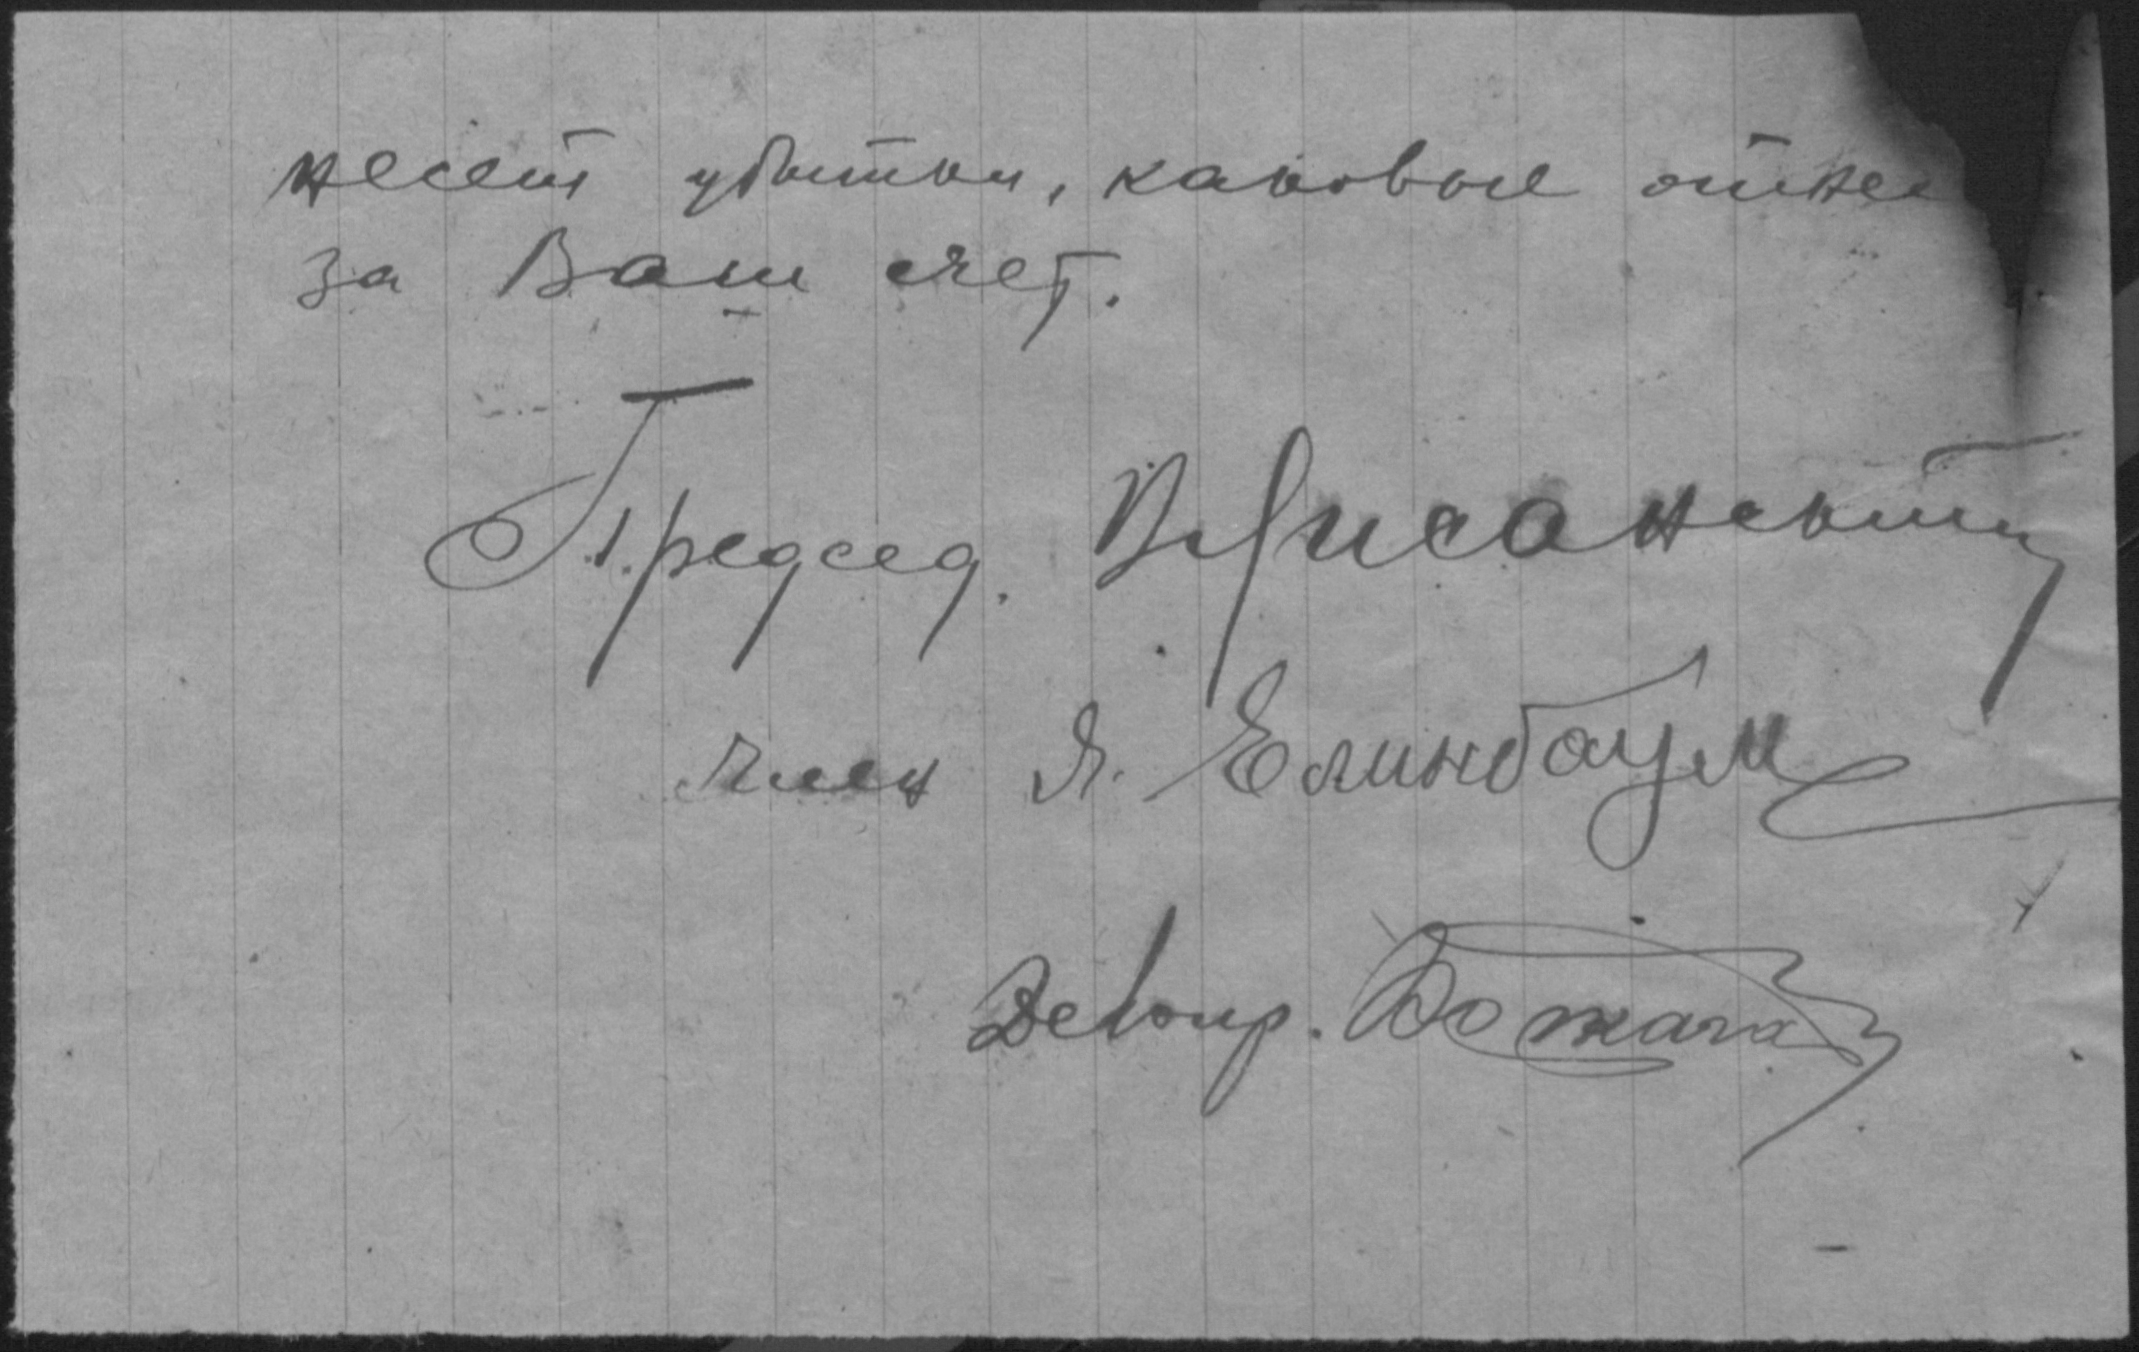 несет убытки, каковые отнес
за Ваш счет.
Председ.
член Я. Елинбаум
Делопр.